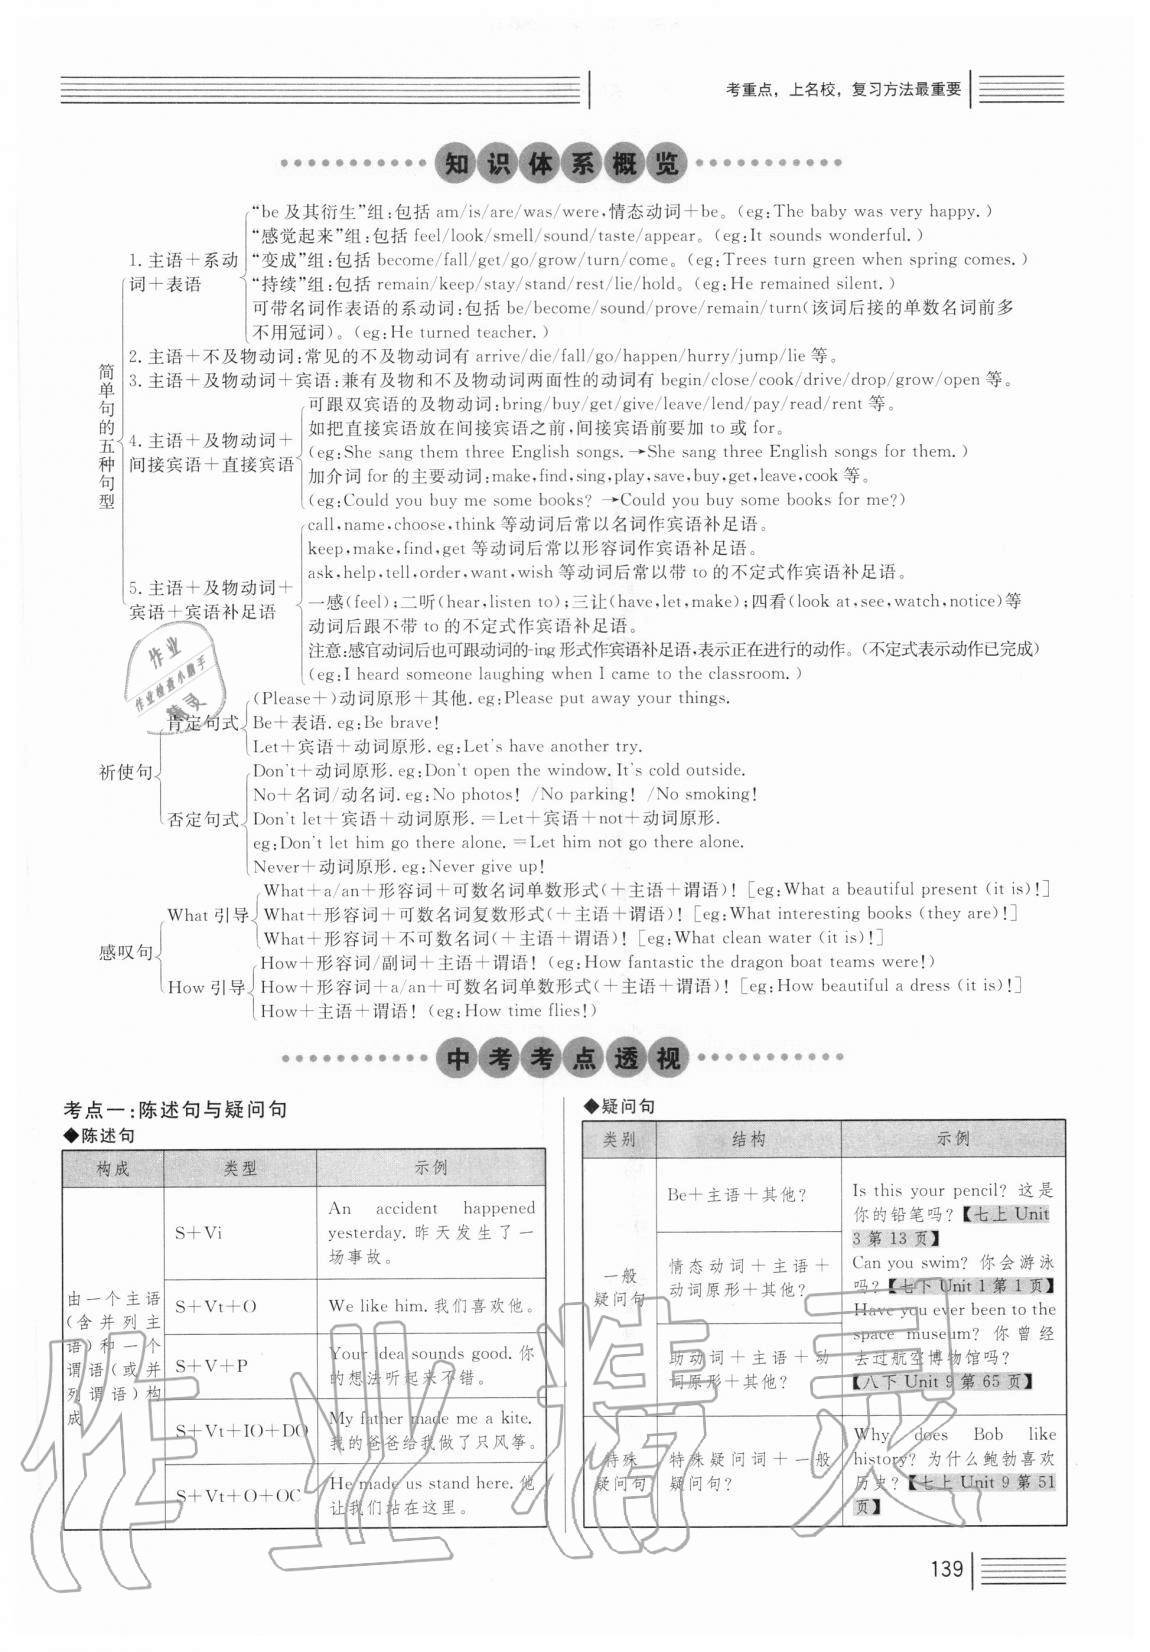 考重点，上名校，复习方法最重要
知识体系概览
简单句的五种句型
1. 主语＋系动词＋表语
“be 及其衍生”组:包括 am/is/are/was/were,情态动词＋be。(eg:The baby was very happy.)
“感觉起来”组:包括 feel/look/smell/sound/taste/appear。(eg:It sounds wonderful.)
“变成”组:包括 become/fall/get/go/grow/turn/come。(eg:Trees turn green when spring comes.)
“持续”组:包括 remain/keep/stay/stand/rest/lie/hold。(eg:He remained silent.)
可带名词作表语的系动词:包括 be/become/sound/prove/remain/turn(该词后接的单数名词前多
不用冠词)。(eg:He turned teacher.)
2. 主语＋不及物动词:常见的不及物动词有 arrive/die/fall/go/happen/hurry/jump/lie 等。
3. 主语＋及物动词＋宾语:兼有及物和不及物动词两面性的动词有 begin/close/cook/drive/drop/grow/open 等。
4. 主语＋及物动词＋
间接宾语＋直接宾语
可跟双宾语的及物动词:bring/buy/get/give/leave/lend/pay/read/rent 等。
如把直接宾语放在间接宾语之前,间接宾语前要加 to 或 for。
(eg:She sang them three English songs. →She sang three English songs for them.)
加介词 for 的主要动词:make,find,sing,play,save,buy,get,leave,cook 等。
(eg:Could you buy me some books? →Could you buy some books for me?)
5. 主语＋及物动词＋
宾语＋宾语补足语
call,name,choose,think 等动词后常以名词作宾语补足语。
keep,make,find,get 等动词后常以形容词作宾语补足语。
ask,help,tell,order,want,wish 等动词后常以带 to 的不定式作宾语补足语。
一感(feel);二听(hear,listen to);三让(have,let,make);四看(look at,see,watch,notice)等
动词后跟不带 to 的不定式作宾语补足语。
注意:感官动词后也可跟动词的-ing 形式作宾语补足语,表示正在进行的动作。(不定式表示动作已完成)
(eg:I heard someone laughing when I came to the classroom.)
作业
作业检查小助手
精灵
祈使句
肯定句式
(Please＋)动词原形＋其他. eg:Please put away your things.
Be＋表语. eg:Be brave!
Let＋宾语＋动词原形. eg:Let's have another try.
否定句式
Don't＋动词原形. eg:Don't open the window. It's cold outside.
No＋名词/动名词. eg:No photos! /No parking! /No smoking!
Don't let＋宾语＋动词原形. ＝Let＋宾语＋not＋动词原形.
eg:Don't let him go there alone. ＝Let him not go there alone.
Never＋动词原形. eg:Never give up!
感叹句
What 引导
What＋a/an＋形容词＋可数名词单数形式(＋主语＋谓语)! [eg:What a beautiful present (it is)!]
What＋形容词＋可数名词复数形式(＋主语＋谓语)! [eg:What interesting books (they are)!]
What＋形容词＋不可数名词(＋主语＋谓语)! [eg:What clean water (it is)!]
How 引导
How＋形容词/副词＋主语＋谓语! (eg:How fantastic the dragon boat teams were!)
How＋形容词＋a/an＋可数名词单数形式(＋主语＋谓语)! [eg:How beautiful a dress (it is)!]
How＋主语＋谓语! (eg:How time flies!)
中考考点透视
考点一:陈述句与疑问句
◆陈述句
构成 类型 示例
由一个主语
(含并列主
语)和一个
谓语(或并
列谓语)构
成
S＋Vi
An accident happened
yesterday. 昨天发生了一
场事故。
S＋Vt＋O
We like him. 我们喜欢他。
S＋V＋P
Your idea sounds good. 你
的想法听起来不错。
S＋Vt＋IO＋DO
My father made me a kite.
我的爸爸给我做了只风筝。
S＋Vt＋O＋OC
He made us stand here. 他
让我们站在这里。
◆疑问句
类别 结构 示例
一般
疑问句
Be＋主语＋其他?
Is this your pencil? 这是
你的铅笔吗?【七上 Unit
3 第 13 页】
情态动词＋主语＋
动词原形＋其他?
Can you swim? 你会游泳
吗?【七下 Unit 1 第 1 页】
助动词＋主语＋动
词原形＋其他?
Have you ever been to the
space museum? 你曾经
去过航空博物馆吗?
【八下 Unit 9 第 65 页】
特殊
疑问句
特殊疑问词＋一般
疑问句?
Why does Bob like
history? 为什么鲍勃喜欢
历史?【七上 Unit 9 第 51
页】
作业精灵
139